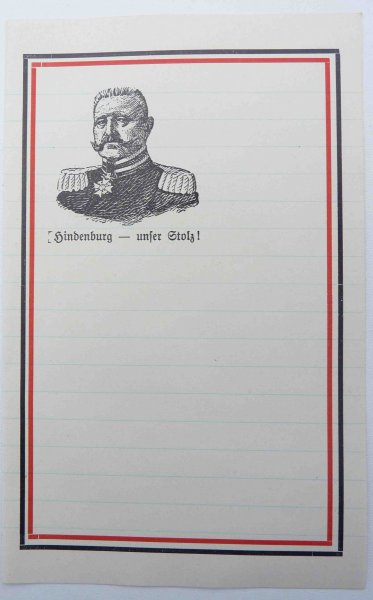 Hindenburg — unſer Stolz!